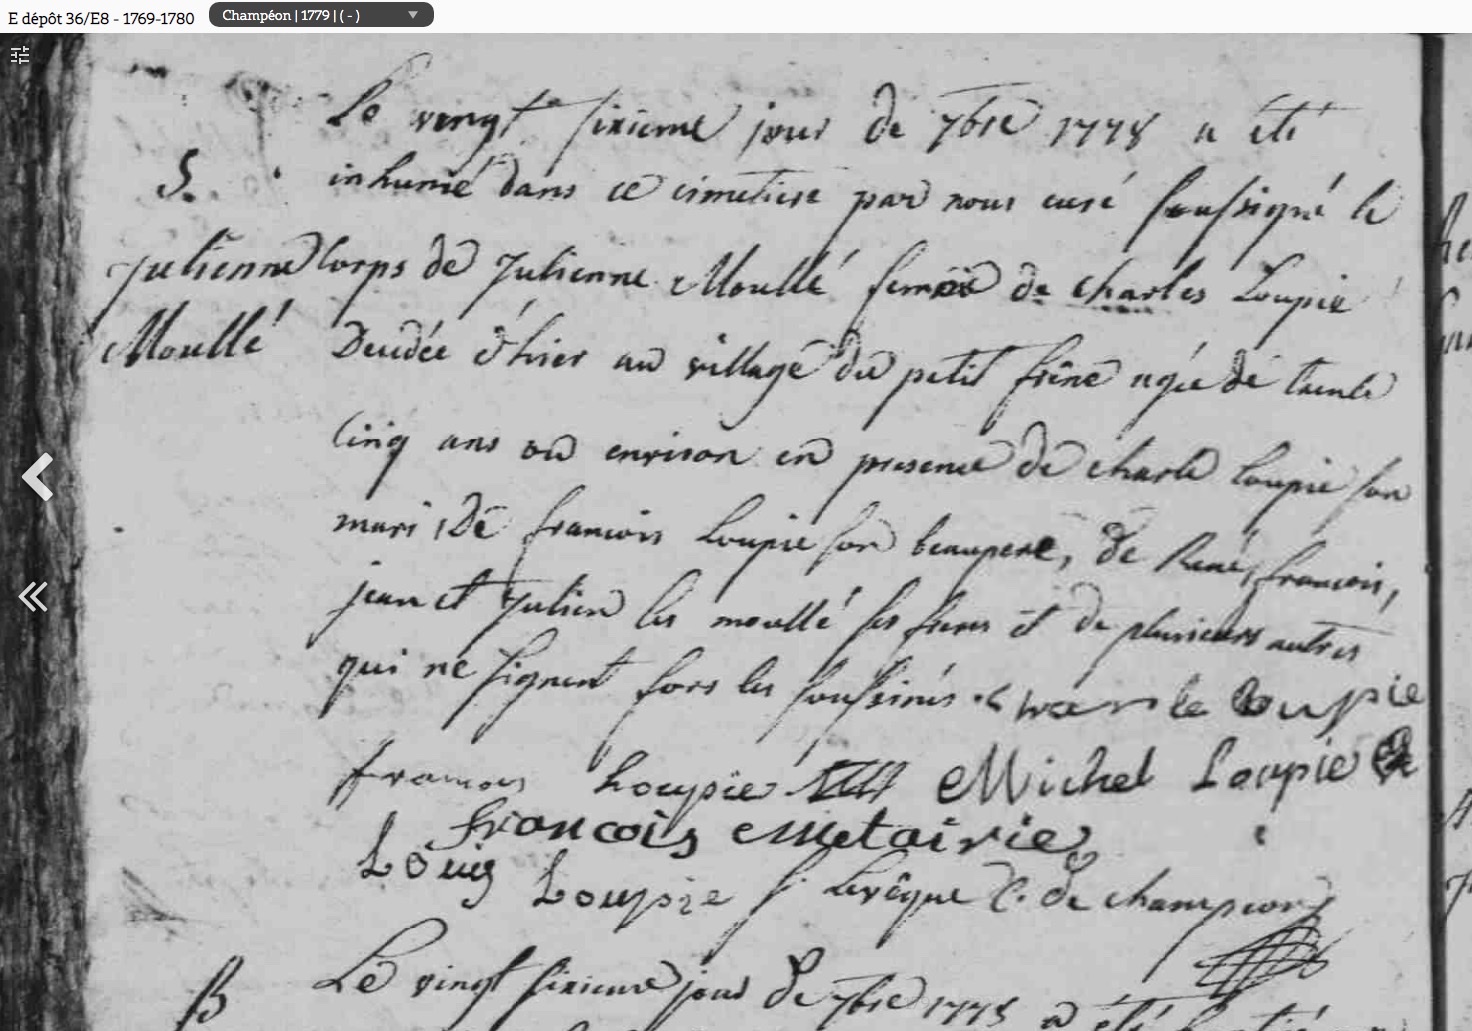 E dépôt 36/E8 - 1769-1780
Champéon | 1779 | ( - )
Le vingt sixieme jour de 7bre 1778 a été
S. inhumé dans ce cimetiere par nous curé soussigné le
Julienne corps de Julienne Moullé femme de charles Loupie
Moullé Decidée d'hier au village du petit frêne agée de trente
cinq ans ou environ en presence de charle Loupie son
mari, de francois Loupie son beaupere, de René, francois,
jean et Julien les moullé ses freres et de plusieurs autres
qui ne signent fors les soussinés. charle Loupie
francois Loupie Michel Loupie
francois Metairie
Louis Loupie f. Levêque C. de champeon
B Le vingt sixieme jour de 7bre 1778 a été